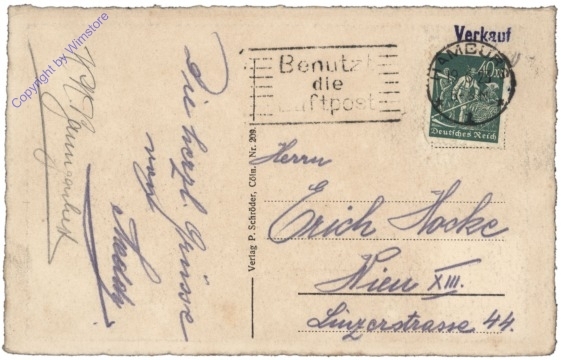 Copyright by Wimstore
Die herzl. Grüsse
von
Verlag P. Schröder, Cöln. Nr. 209.
Benutzt
die
Luftpost
Verkauf
HAMBURG
1
40
Deutsches Reich
Herrn
Erich Hocke
Wien XIII.
Linzerstrasse 44.